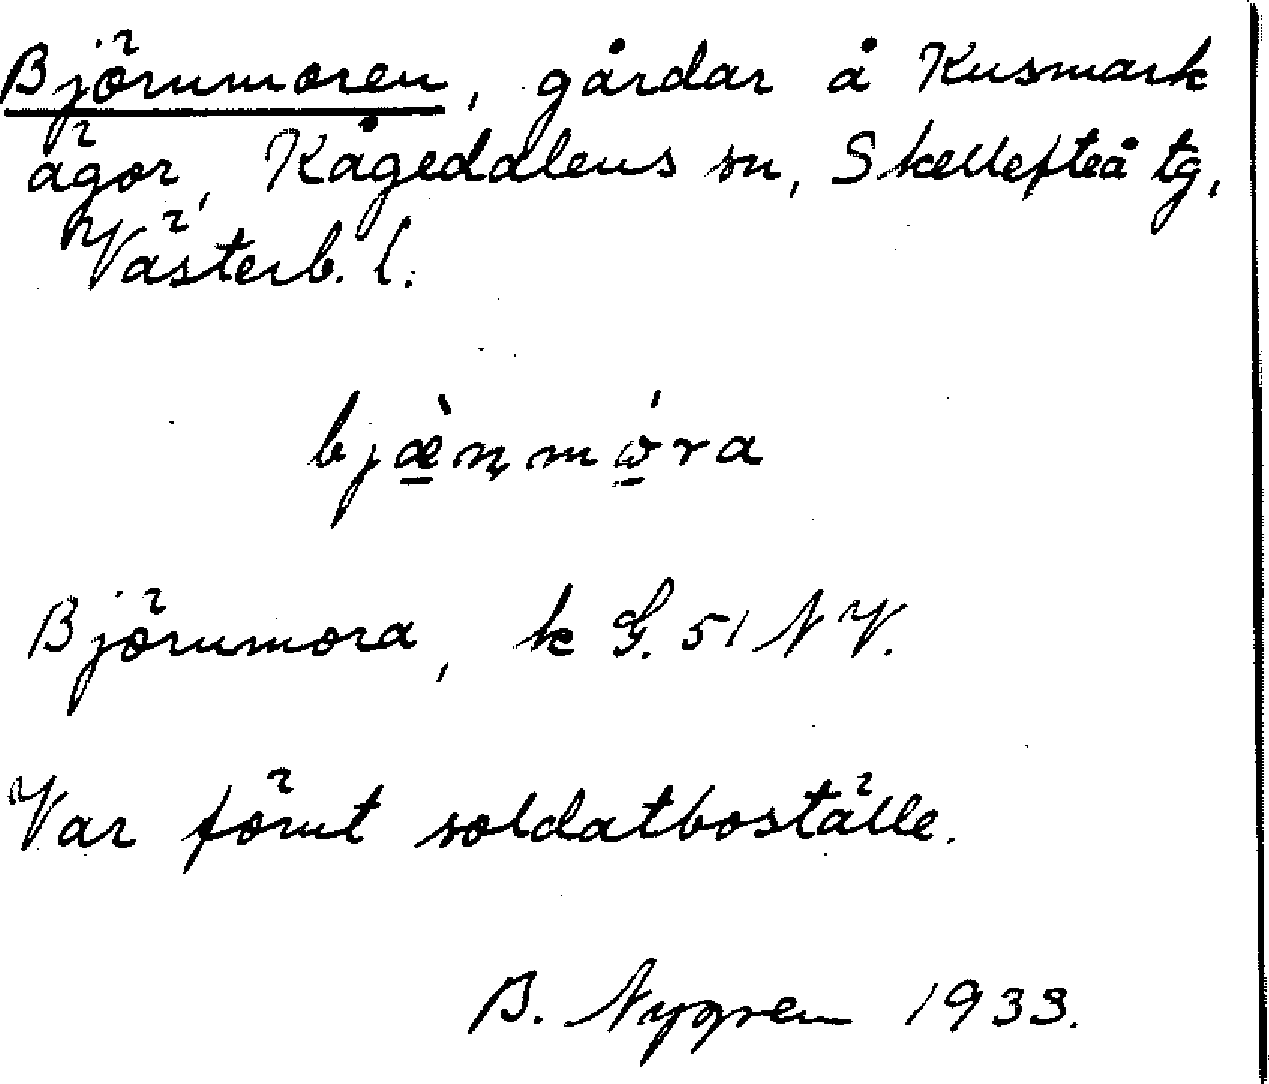 Björnmoren, gårdar å Kusmark
ägor, Kågedalens sn, Skellefteå tg,
Västerb. l.
bjæ̀ṇmóra
Björnmora, k G. 51 NV.
Var förut soldatboställe.
B. Nygren 1933.